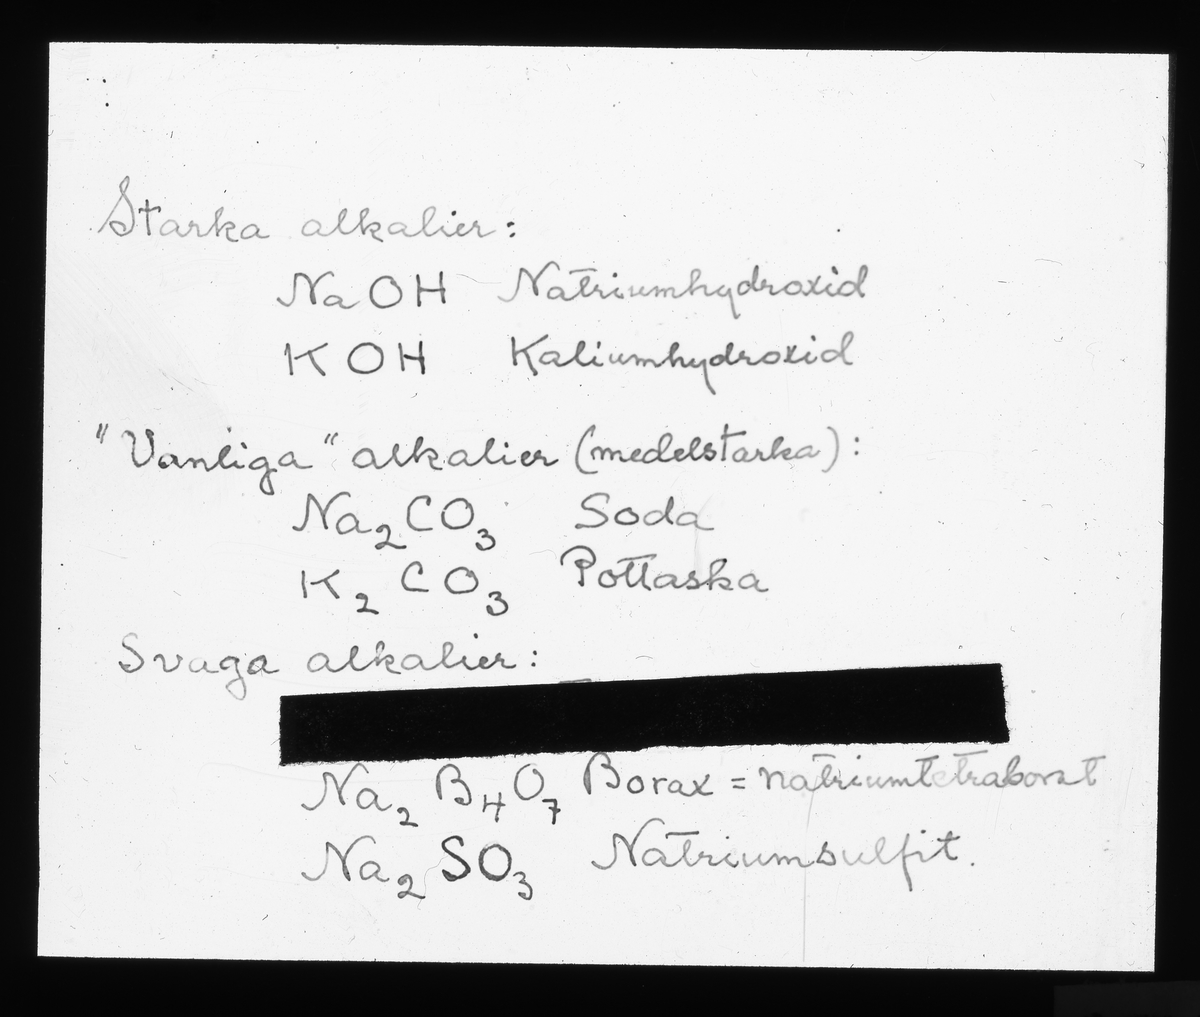 Starka alkalier:
NaOH Natriumhydroxid
KOH Kaliumhydroxid
"Vanliga" alkalier (medelstarka):
Na₂CO₃ Soda
K₂CO₃ Pottaska
Svaga alkalier:
Na₂B₄O₇ Borax = natriumtetraborat
Na₂SO₃ Natriumsulfit.